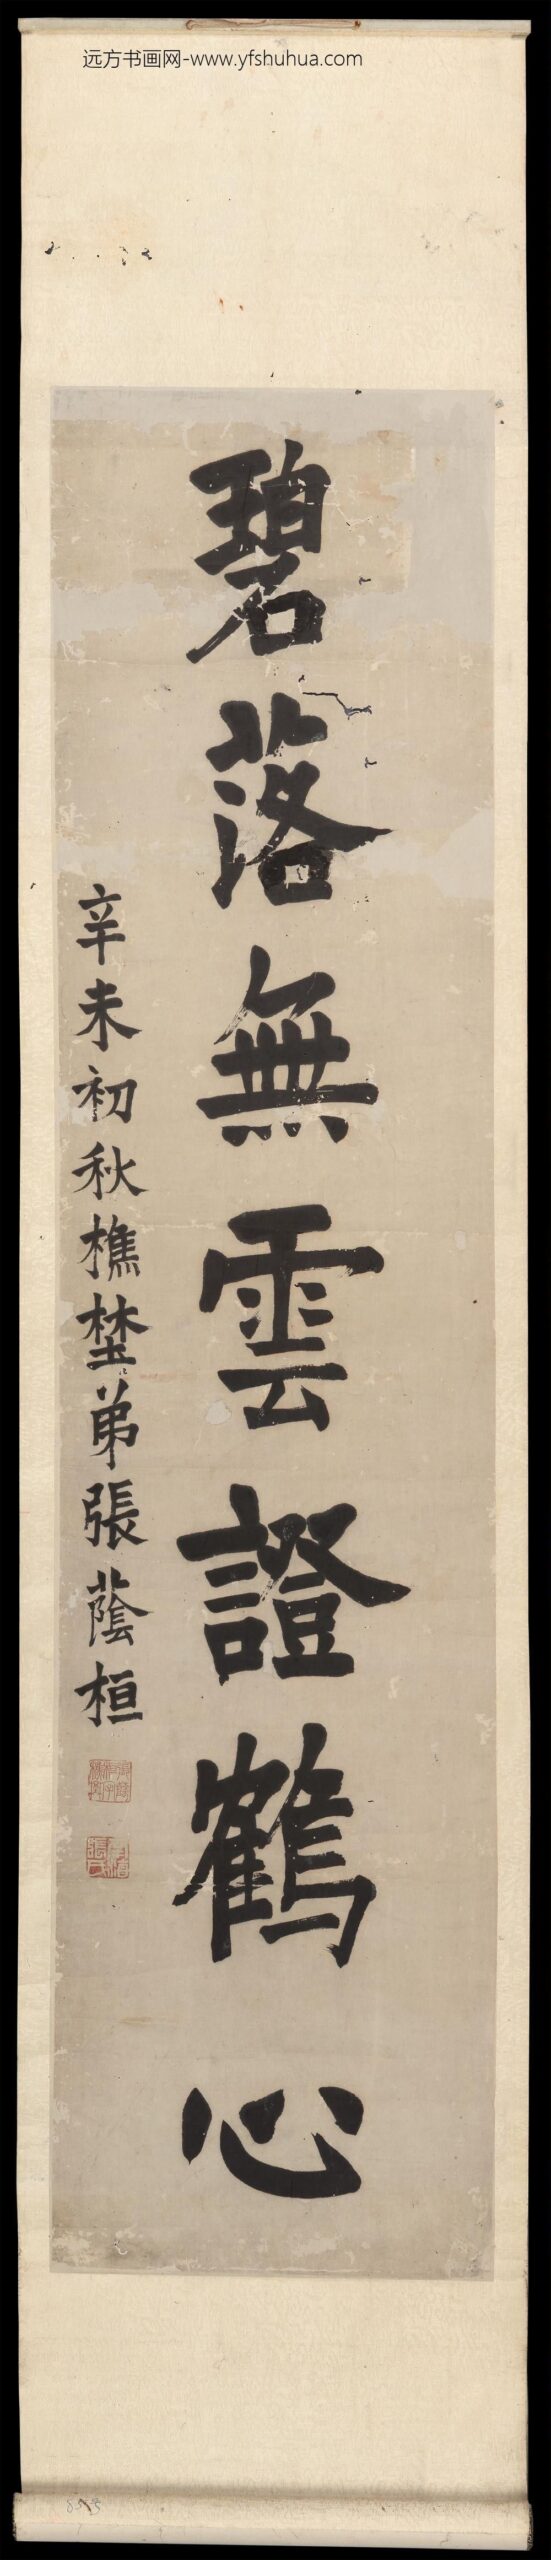 远方书画网-www.yfshuhua.com
碧落無雲證鶴心
辛未初秋樵埜弟張蔭桓